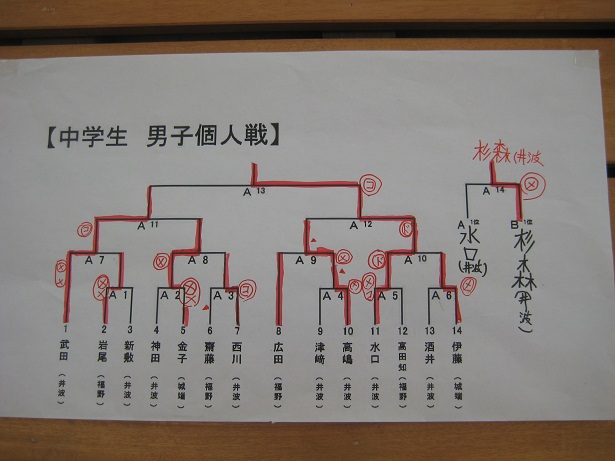 【中学生 男子個人戦】
杉森(井波
A 13 コ
A 14 メ
A 11
A 12
A 1位
B 1位
水口(井波)
杉森(井波)
コ
ド
A 7
A 8
A 9
A 10
メ
A 1
A 2
A 3 コ
A 4
A 5
A 6 メ
1 2 3 4 5 6 7 8 9 10 11 12 13 14
武田 岩尾 新敷 神田 金子 齋藤 西川 広田 津﨑 高嶋 水口 高田知 酒井 伊藤
(井波) (福野) (井波) (井波) (城端) (福野) (井波) (福野) (井波) (井波) (井波) (福野) (井波) (城端)